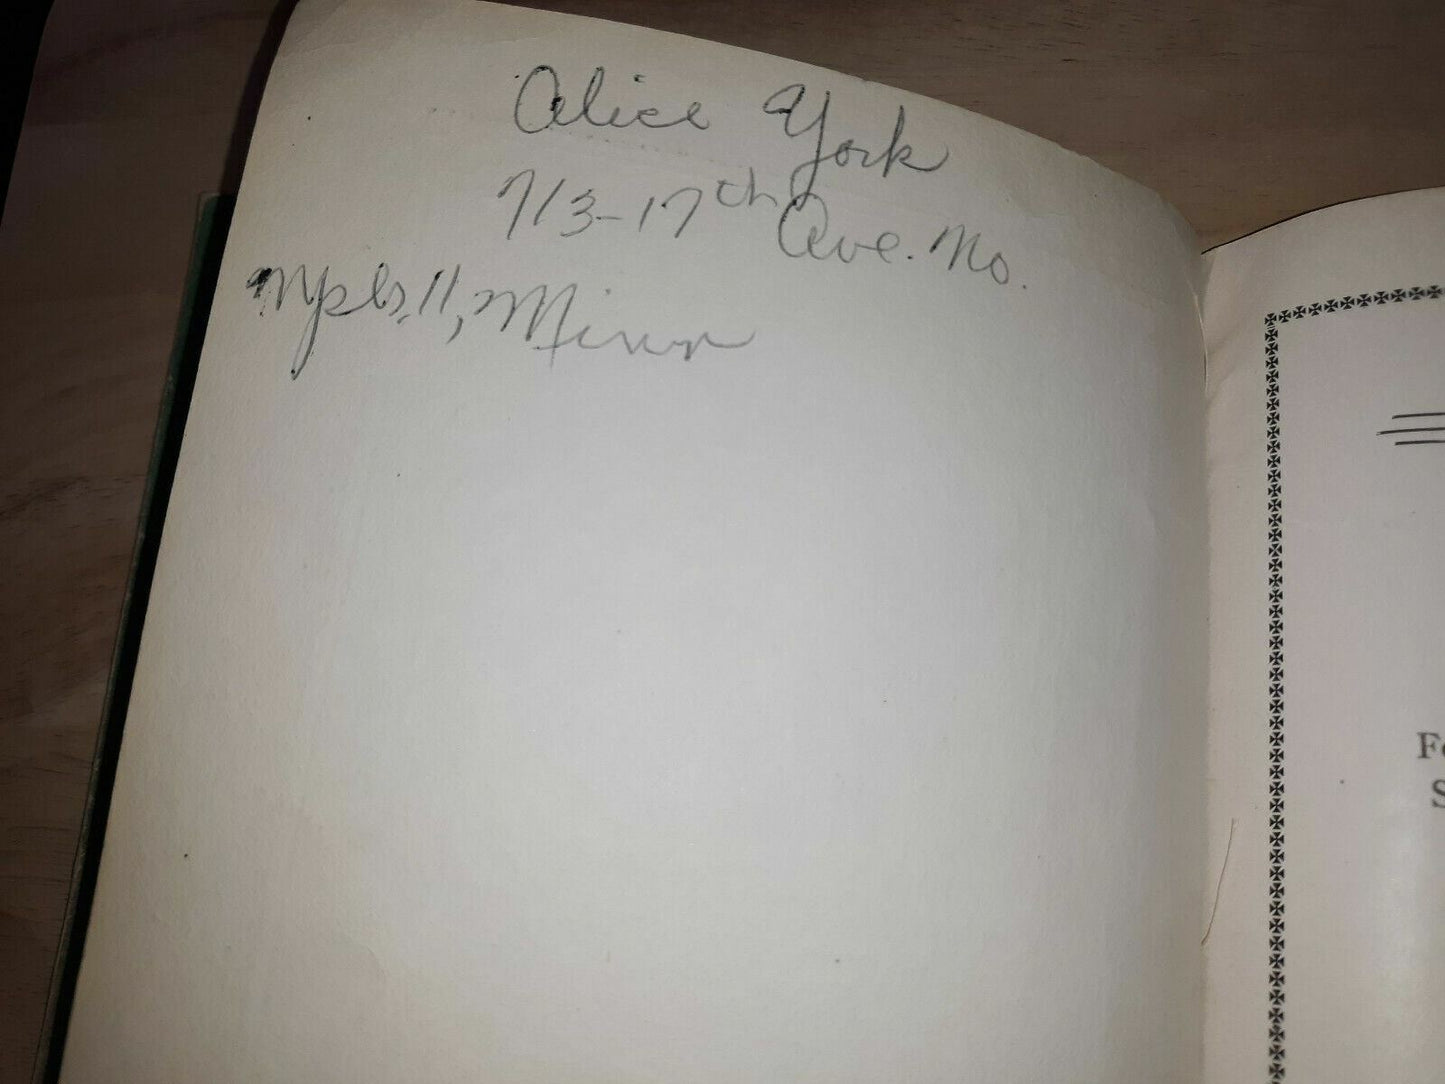 Alice York
713-17th Ave. No.
Mpls. 11, Minn